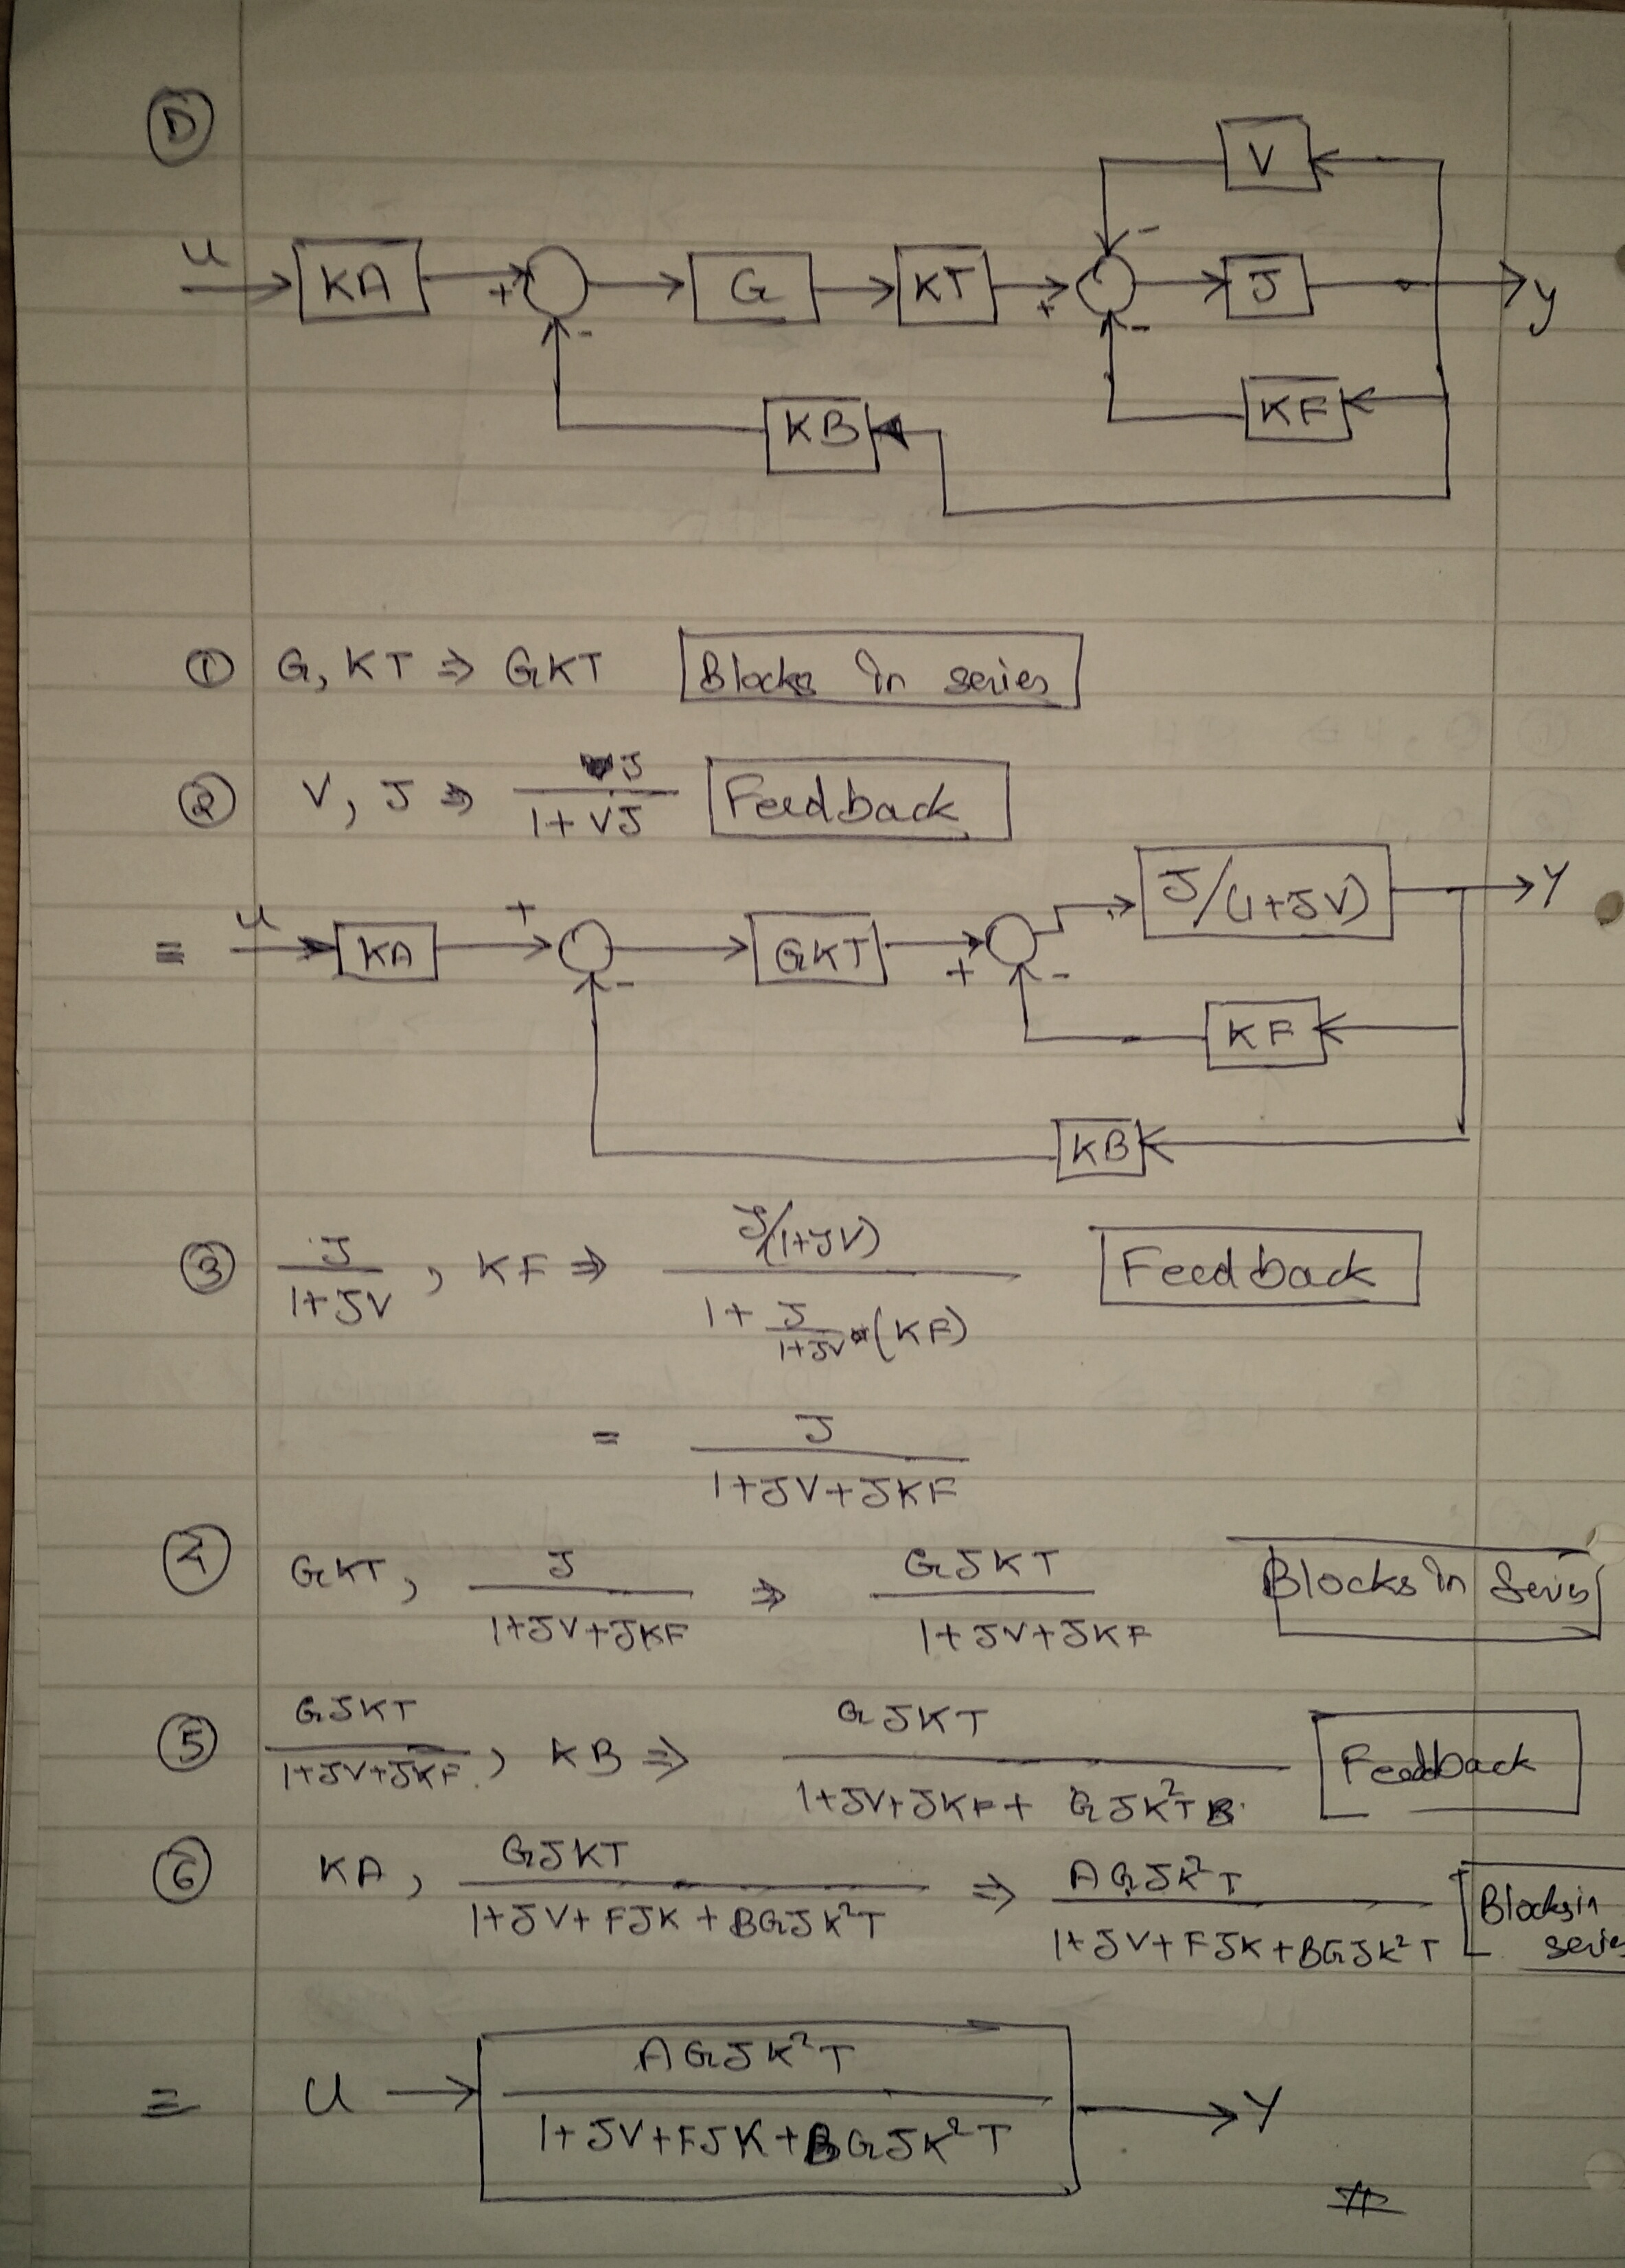 D
V
u KA + - G KT + - - J y
KB KF
① G, KT ⇒ GKT Blocks in series
② V, J ⇒ J/(1+VJ) Feedback
≡ u KA + - GKT + - J/(1+JV) Y
KF
KB
③ J/(1+JV), KF ⇒ (J/(1+JV))/(1+J/(1+JV)·(KF)) Feedback
= J/(1+JV+JKF)
④ GKT, J/(1+JV+JKF) ⇒ GJKT/(1+JV+JKF) Blocks in Series
⑤ GJKT/(1+JV+JKF), KB ⇒ GJKT/(1+JV+JKF+GJK²TB) Feedback
⑥ KA, GJKT/(1+JV+FJK+BGJK²T) ⇒ AGJK²T/(1+JV+FJK+BGJK²T) Blocks in series
≡ U → AGJK²T/(1+JV+FJK+BGJK²T) → Y
#